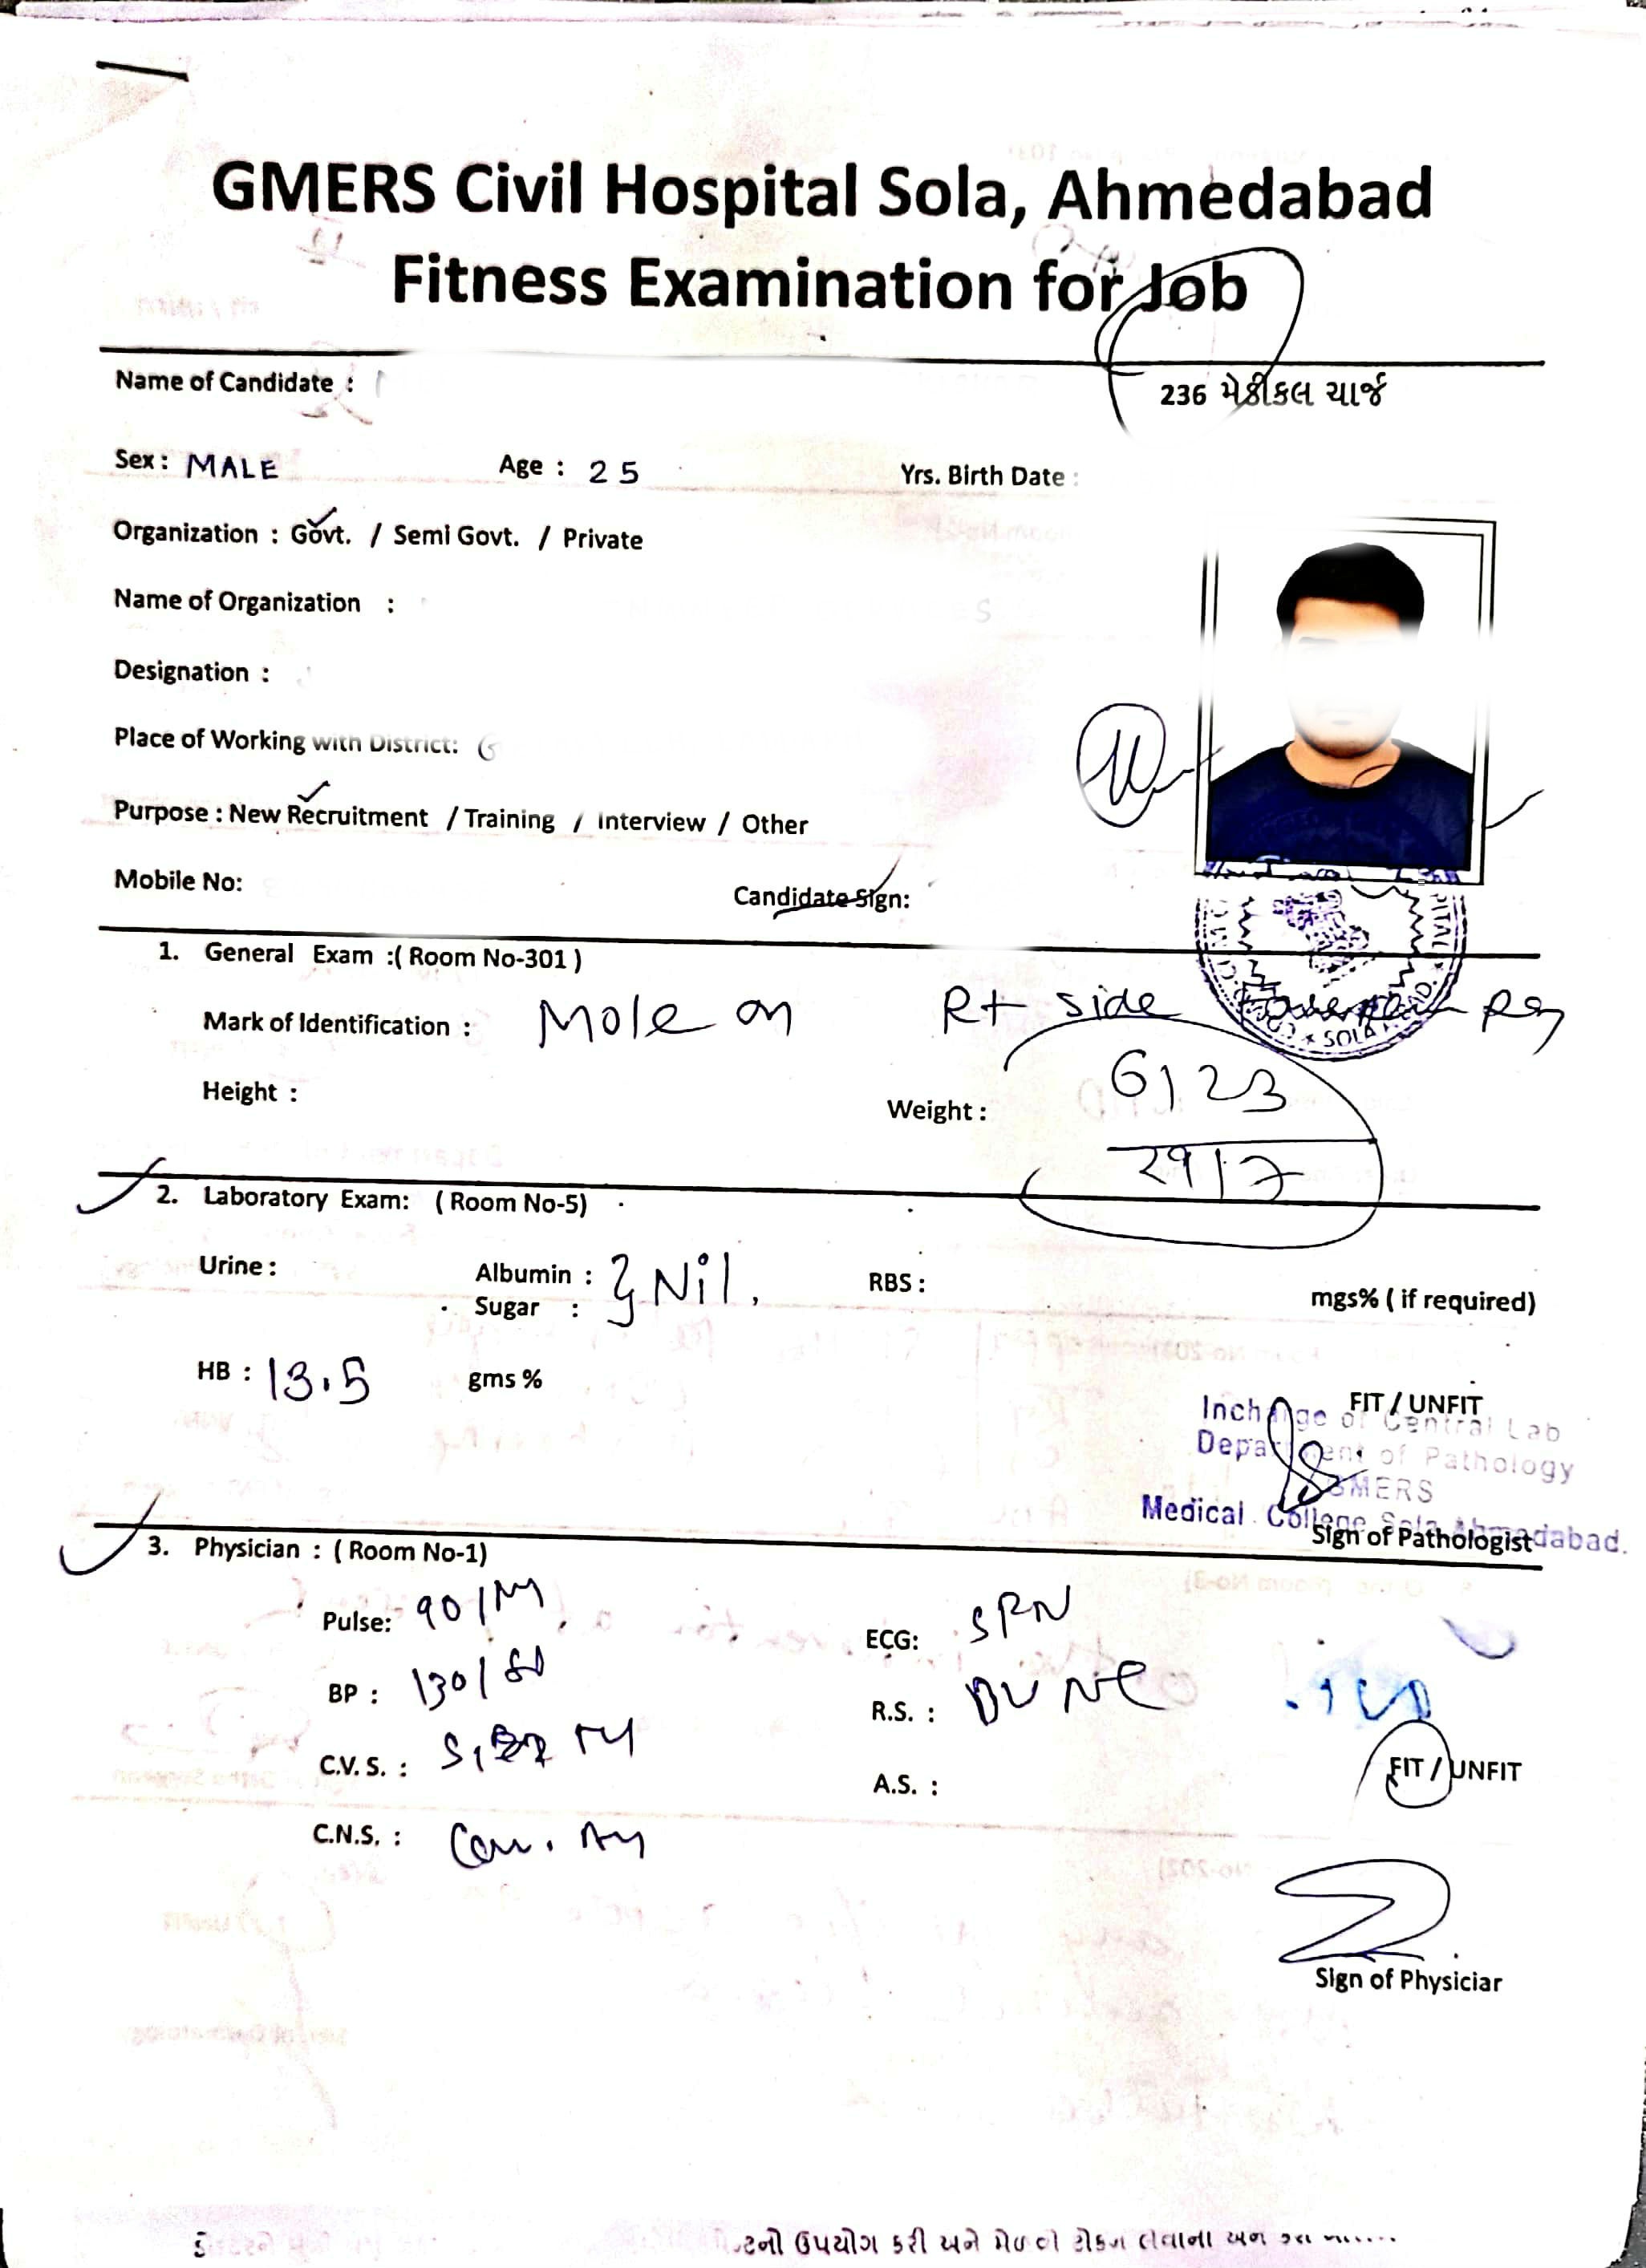 GMERS Civil Hospital Sola, Ahmedabad
Fitness Examination for Job
Name of Candidate :
236 મેડીકલ ચાર્જ
Sex : MALE Age : 25 Yrs. Birth Date :
Organization : Govt. / Semi Govt. / Private
Name of Organization :
Designation :
Place of Working with District:
Purpose : New Recruitment / Training / Interview / Other
Mobile No: Candidate Sign:
1. General Exam :( Room No-301 )
Mark of Identification : Mole on Rt side
Height : Weight :
6123
2. Laboratory Exam: ( Room No-5)
Urine : Albumin : } Nil.
Sugar :
RBS : mgs% ( if required)
HB : 13.5 gms %
FIT / UNFIT
Incharge of Central Lab
Department of Pathology
GMERS
Medical College Sola Ahmedabad.
Sign of Pathologist
3. Physician : ( Room No-1)
Pulse: 90/M ECG:
BP : 130/80 R.S. :
C.V.S. : A.S. :
FIT / UNFIT
C.N.S. :
Sign of Physiciar
ઉપયોગ કરી અને